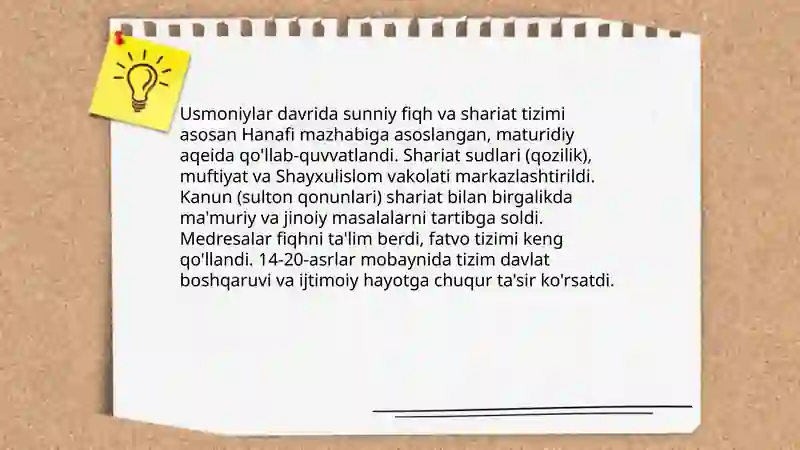 Usmoniylar davrida sunniy fiqh va shariat tizimi
asosan Hanafi mazhabiga asoslangan, maturidiy
aqeida qo'llab-quvvatlandi. Shariat sudlari (qozilik),
muftiyat va Shayxulislom vakolati markazlashtirildi.
Kanun (sulton qonunlari) shariat bilan birgalikda
ma'muriy va jinoiy masalalarni tartibga soldi.
Medresalar fiqhni ta'lim berdi, fatvo tizimi keng
qo'llandi. 14-20-asrlar mobaynida tizim davlat
boshqaruvi va ijtimoiy hayotga chuqur ta'sir ko'rsatdi.